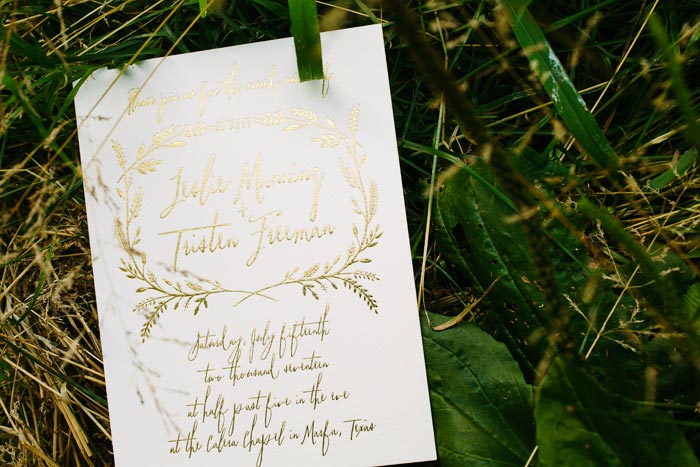 Please join us for the wedding of
Leslie Manning
+
Tristen Freeman
Saturday, July fifteenth
two thousand seventeen
at half past five in the eve
at the Calera Chapel in Marfa, Texas